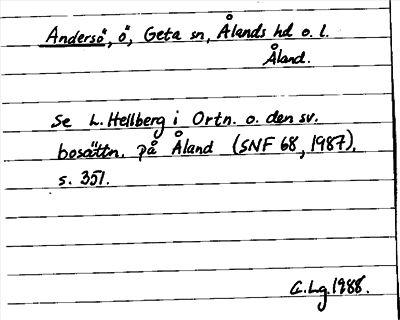 Andersö, ö, Geta sn, Ålands hd o. l.
Åland.
Se L. Hellberg i Ortn. o. den sv.
bosättn. på Åland (SNF 68, 1987),
s. 351.
C. Lg. 1988.